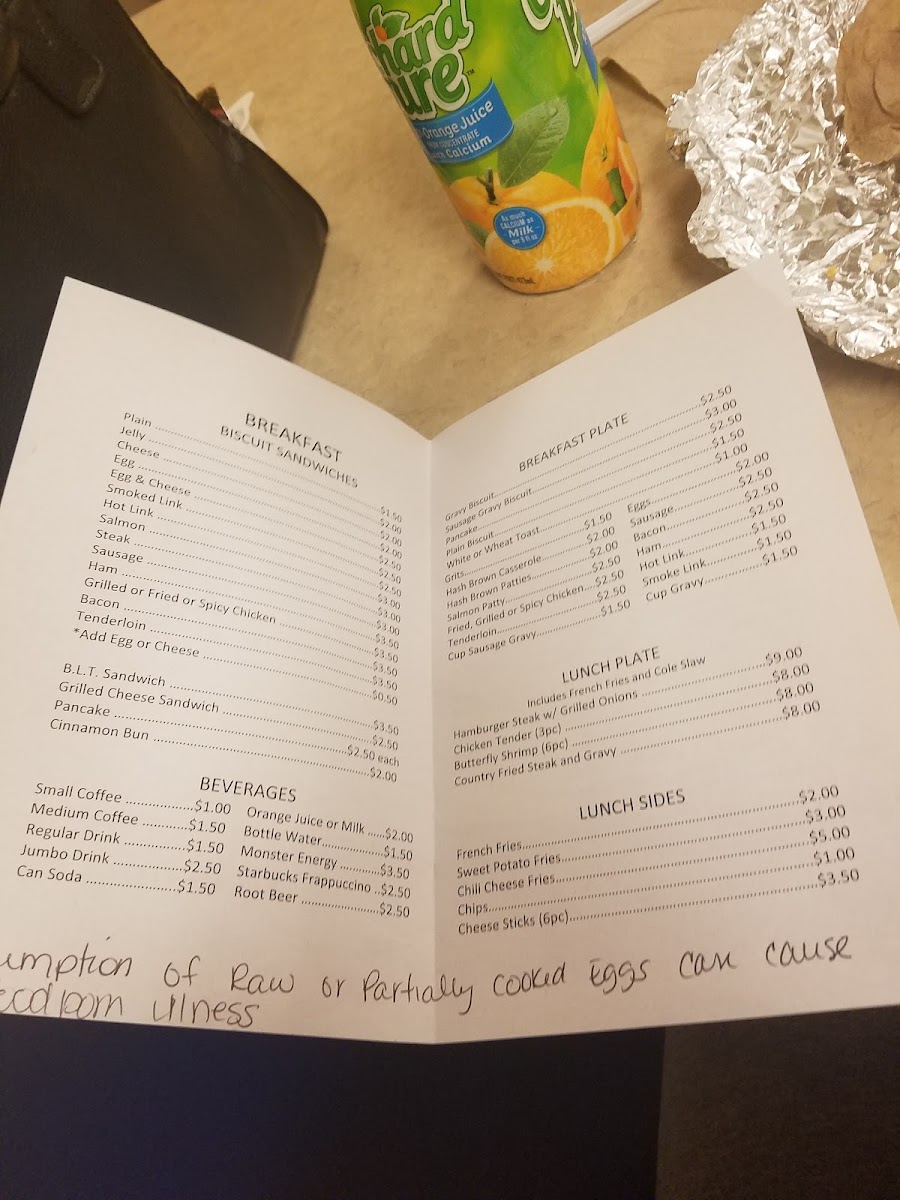 chard
ure™
Orange Juice
FROM CONCENTRATE
Calcium
As much
CALCIUM as
Milk
per 8 fl oz
BREAKFAST
BISCUIT SANDWICHES
Plain ........ $1.50
Jelly ........ $2.00
Cheese ........ $2.00
Egg ........ $2.00
Egg & Cheese ........ $2.50
Smoked Link ........ $2.50
Hot Link ........ $2.50
Salmon ........ $3.00
Steak ........ $3.00
Sausage ........ $3.00
Ham ........ $3.50
Grilled or Fried or Spicy Chicken ........ $3.50
Bacon ........ $3.50
Tenderloin ........ $3.50
*Add Egg or Cheese ........ $0.50
B.L.T. Sandwich ........ $3.50
Grilled Cheese Sandwich ........ $2.50
Pancake ........ $2.50 each
Cinnamon Bun ........ $2.00
BEVERAGES
Small Coffee ........ $1.00
Medium Coffee ........ $1.50
Regular Drink ........ $1.50
Jumbo Drink ........ $2.50
Can Soda ........ $1.50
Orange Juice or Milk ...... $2.00
Bottle Water........ $1.50
Monster Energy ........ $3.50
Starbucks Frappuccino .. $2.50
Root Beer ........ $2.50
BREAKFAST PLATE
Gravy Biscuit........ $2.50
Sausage Gravy Biscuit........ $3.00
Pancake........ $2.50
Plain Biscuit........ $1.50
White or Wheat Toast........ $1.00
Grits........ $1.50
Hash Brown Casserole........ $2.00
Hash Brown Patties........ $2.00
Salmon Patty........ $2.50
Fried, Grilled or Spicy Chicken.... $2.50
Tenderloin........ $2.50
Cup Sausage Gravy........ $1.50
Eggs........ $2.00
Sausage........ $2.50
Bacon........ $2.50
Ham........ $2.50
Hot Link........ $1.50
Smoke Link........ $1.50
Cup Gravy........ $1.50
LUNCH PLATE
Includes French Fries and Cole Slaw
Hamburger Steak w/ Grilled Onions ........ $9.00
Chicken Tender (3pc) ........ $8.00
Butterfly Shrimp (6pc) ........ $8.00
Country Fried Steak and Gravy ........ $8.00
LUNCH SIDES
French Fries........ $2.00
Sweet Potato Fries........ $3.00
Chili Cheese Fries........ $5.00
Chips........ $1.00
Cheese Sticks (6pc)........ $3.50
umption of Raw or Partially cooked Eggs can cause
illness